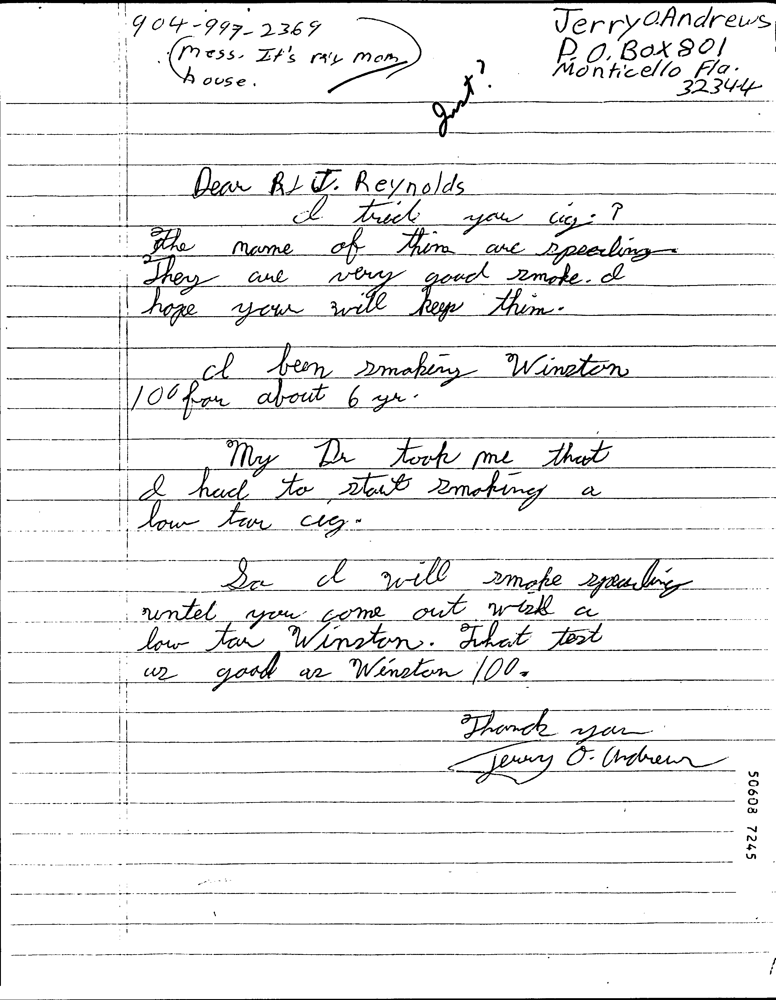 904-997-2369
(Mess. It's my mom
house.
Jerry O. Andrews
P.O. Box 801
Monticello Fla.
32344
Just?
Dear RJ J. Reynolds
I tried your cig. ?
The name of thim are spearling
They are very good smoke. I
hope your will keep thim.
I been smoking Winston
100 for about 6 yr.
My Dr took me that
I had to start smoking a
low tar cig.
So I will smoke spearling
untel you come out with a
low tar Winston. That test
us good as Winston 100.
Thanck you
Jerry O. Andrews
50608 7245